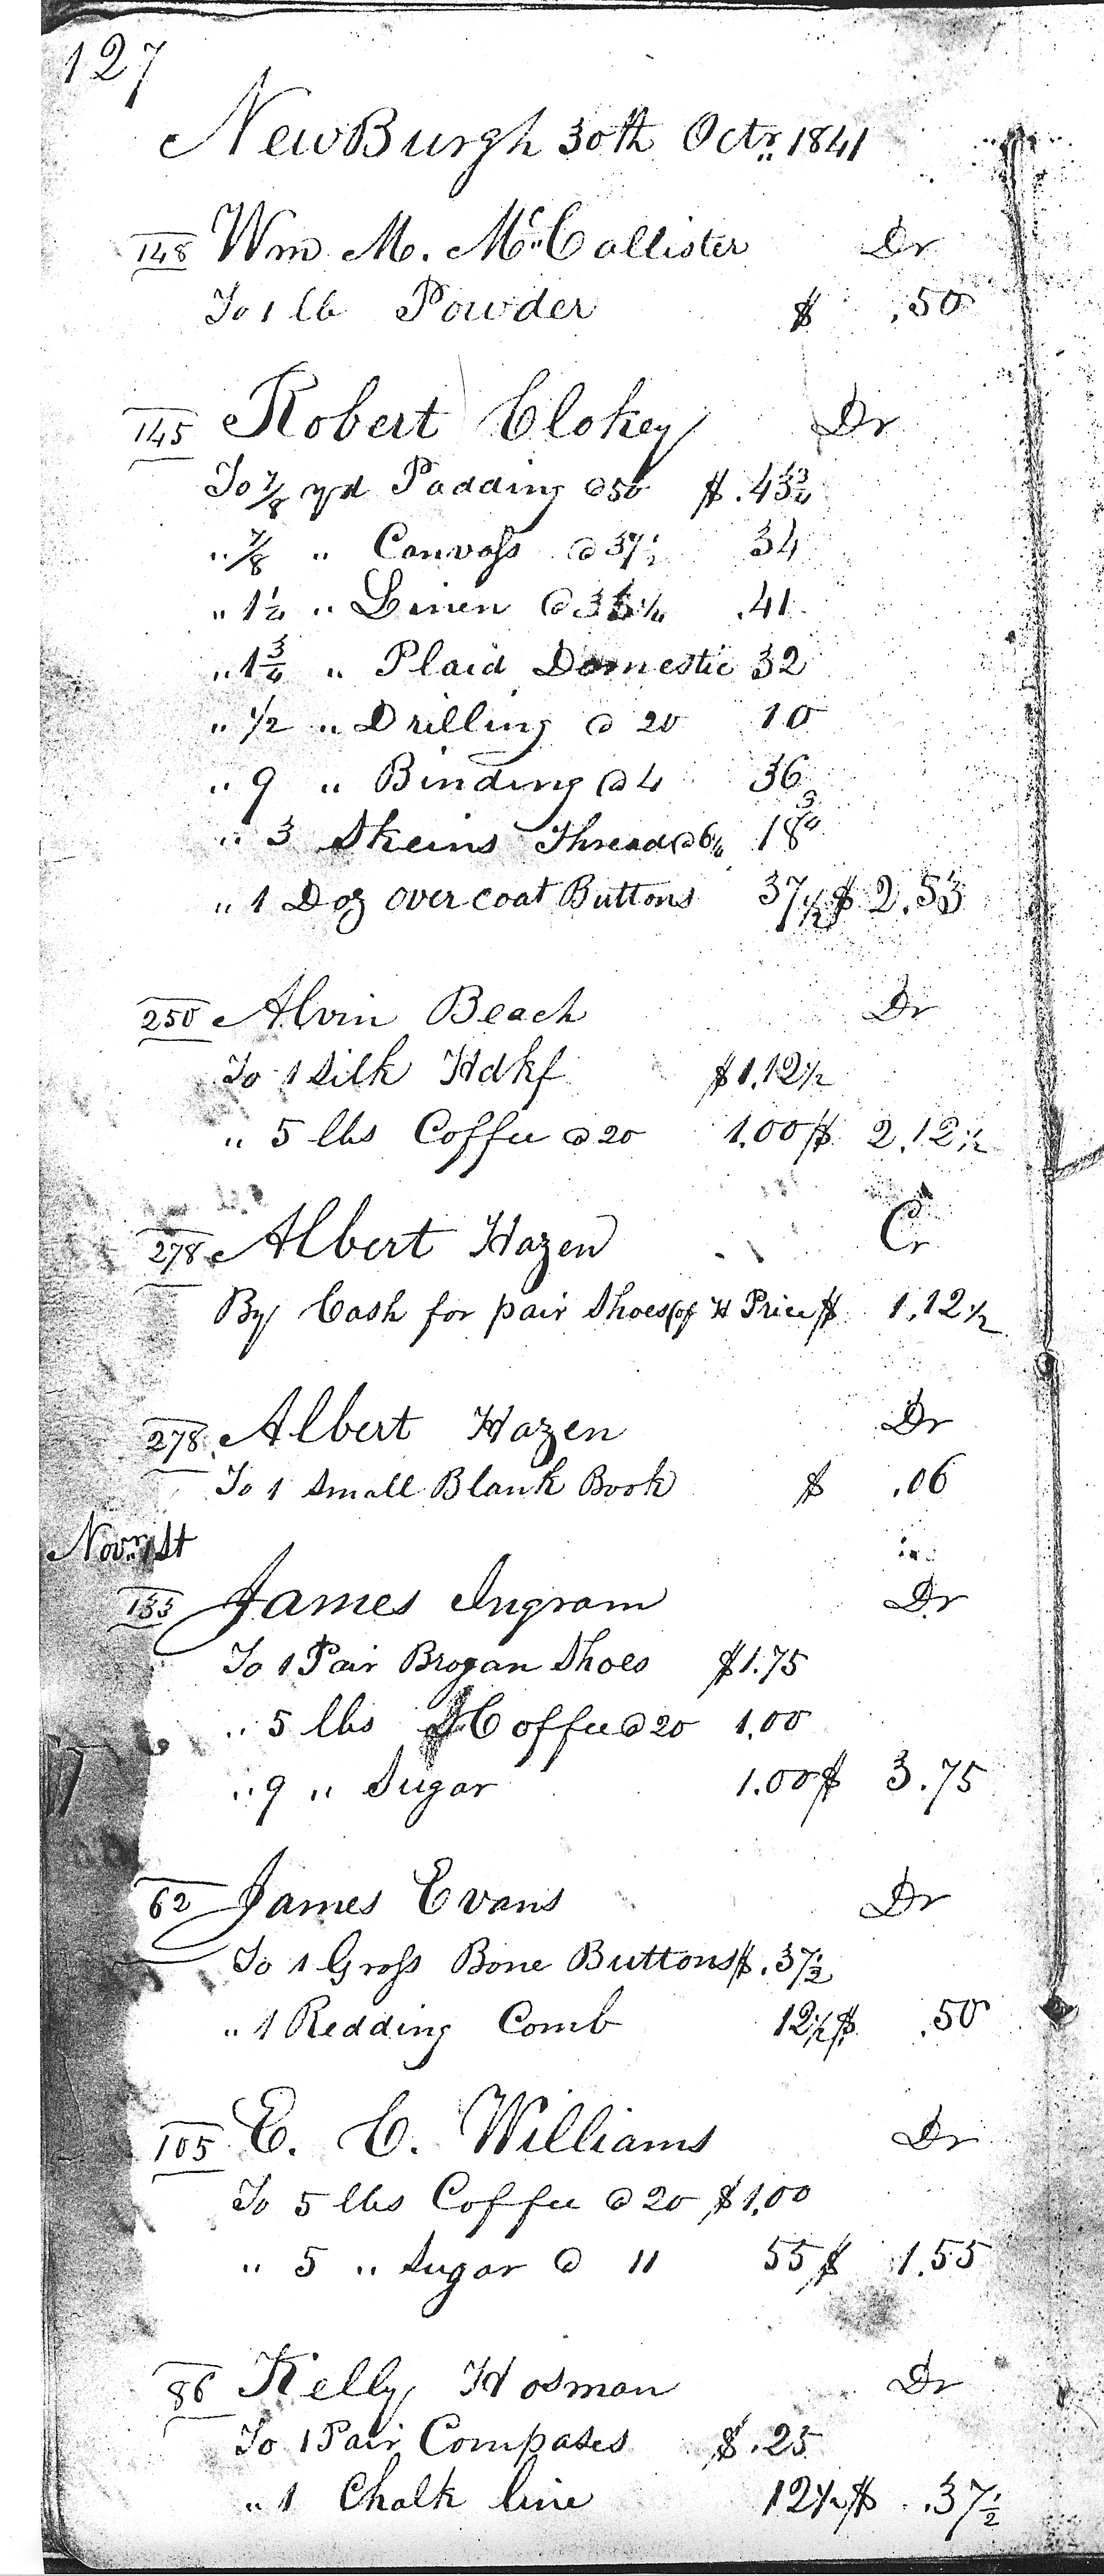 127
NewBurgh 30th Octr. 1841
148 Wm M. McCallister Dr
To 1 lb Powder $ .50
145 Robert Clokey Dr
To 7/8 yd Padding @ 50 $ .43 3/4
" 7/8 " Canvass @ 37 1/2 34
" 1 1/4 " Linen @ 41
" 1 3/4 " Plaid Domestic 32
" 1/2 " Drilling @ 20 10
" 9 " Binding @ 4 36
" 3 Skeins Thread @ 6 1/4 18 3/4
" 1 Doz over coat Buttons 37 1/2 $ 2.53
250 Alvin Beach Dr
To 1 Silk Hdkf $1.12 1/2
" 5 lbs Coffee @ 20 1.00 $ 2.12 1/2
278 Albert Hazen Cr
By Cash for pair Shoes Price $ 1.12 1/2
278 Albert Hazen Dr
To 1 Small Blank Book $ .06
Novr. 1st
133 James Ingram Dr
To 1 Pair Brogan Shoes $1.75
" 5 lbs Coffee @ 20 1.00
" 9 " Sugar 1.00 $ 3.75
62 James Evans Dr
To 1 Gross Bone Buttons $ .37 1/2
" 1 Redding Comb 12 1/2 $ .50
105 E. C. Williams Dr
To 5 lbs Coffee @ 20 $1.00
" 5 " Sugar @ 11 55 $ 1.55
86 Kelly Hosman Dr
To 1 Pair Compases $ .25
" 1 Chalk line 12 1/2 $ .37 1/2